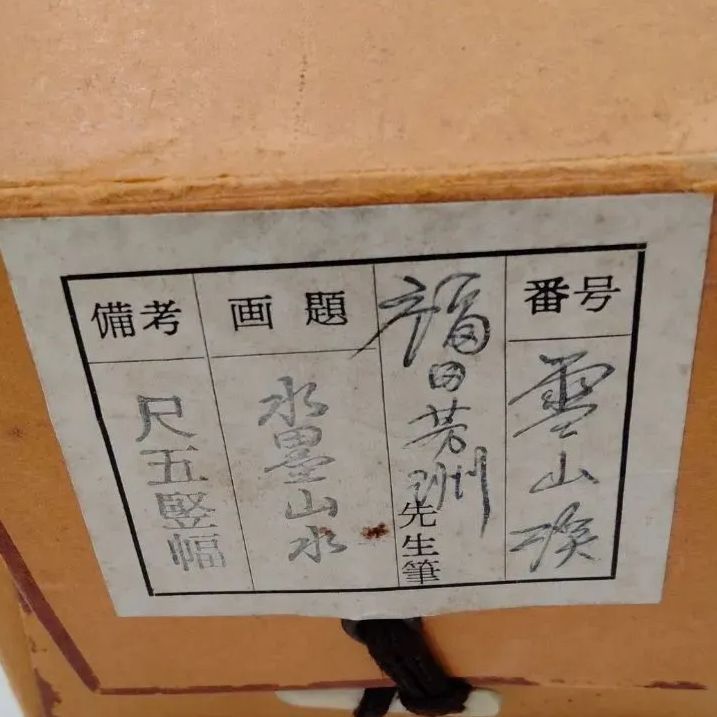 番号
山
福田芳洲
先生筆
画題
水墨山水
備考
尺五竪幅